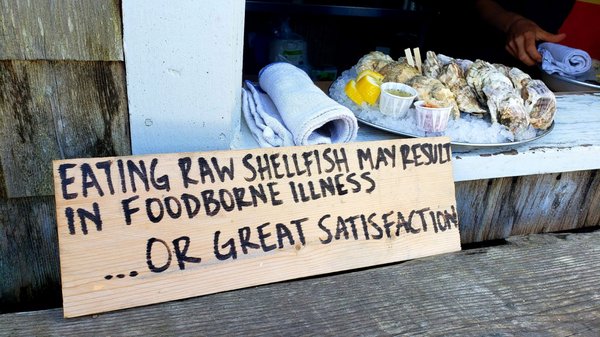 EATING RAW SHELLFISH MAY RESULT
IN FOODBORNE ILLNESS
... OR GREAT SATISFACTION